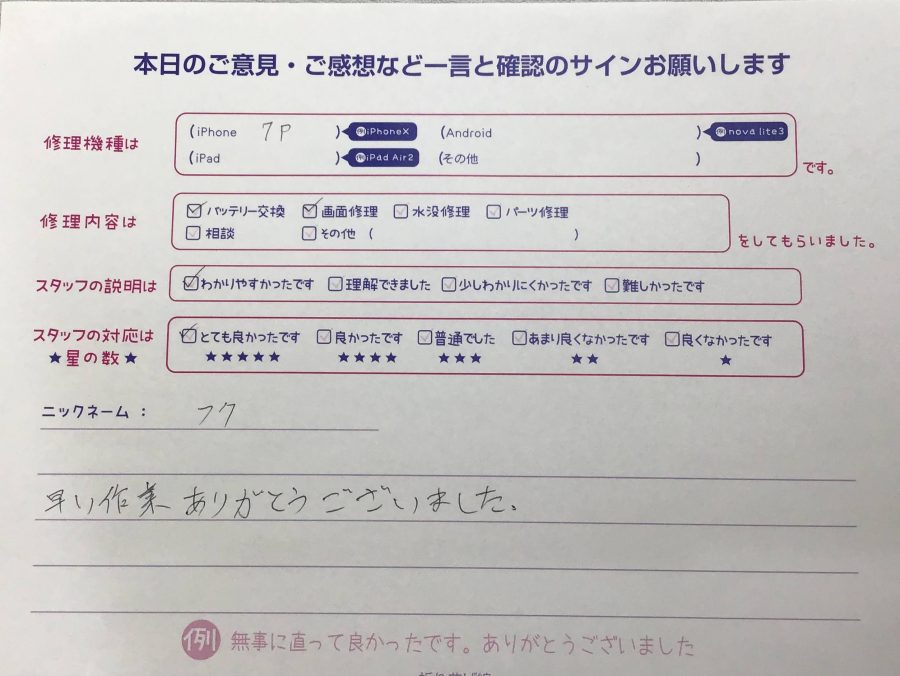 本日のご意見・ご感想など一言と確認のサインお願いします
修理機種は
(iPhone 7P ) 例iPhoneX (Android ) 例nova lite3
(iPad ) 例iPad Air2 (その他 ) です。
修理内容は
バッテリー交換 画面修理 水没修理 パーツ修理
相談 その他 ( ) をしてもらいました。
スタッフの説明は わかりやすかったです 理解できました 少しわかりにくかったです 難しかったです
スタッフの対応は とても良かったです 良かったです 普通でした あまり良くなかったです 良くなかったです
★星の数★ ★★★★★ ★★★★ ★★★ ★★ ★
ニックネーム： フク
早い作業ありがとうございました。
例 無事に直って良かったです。ありがとうございました